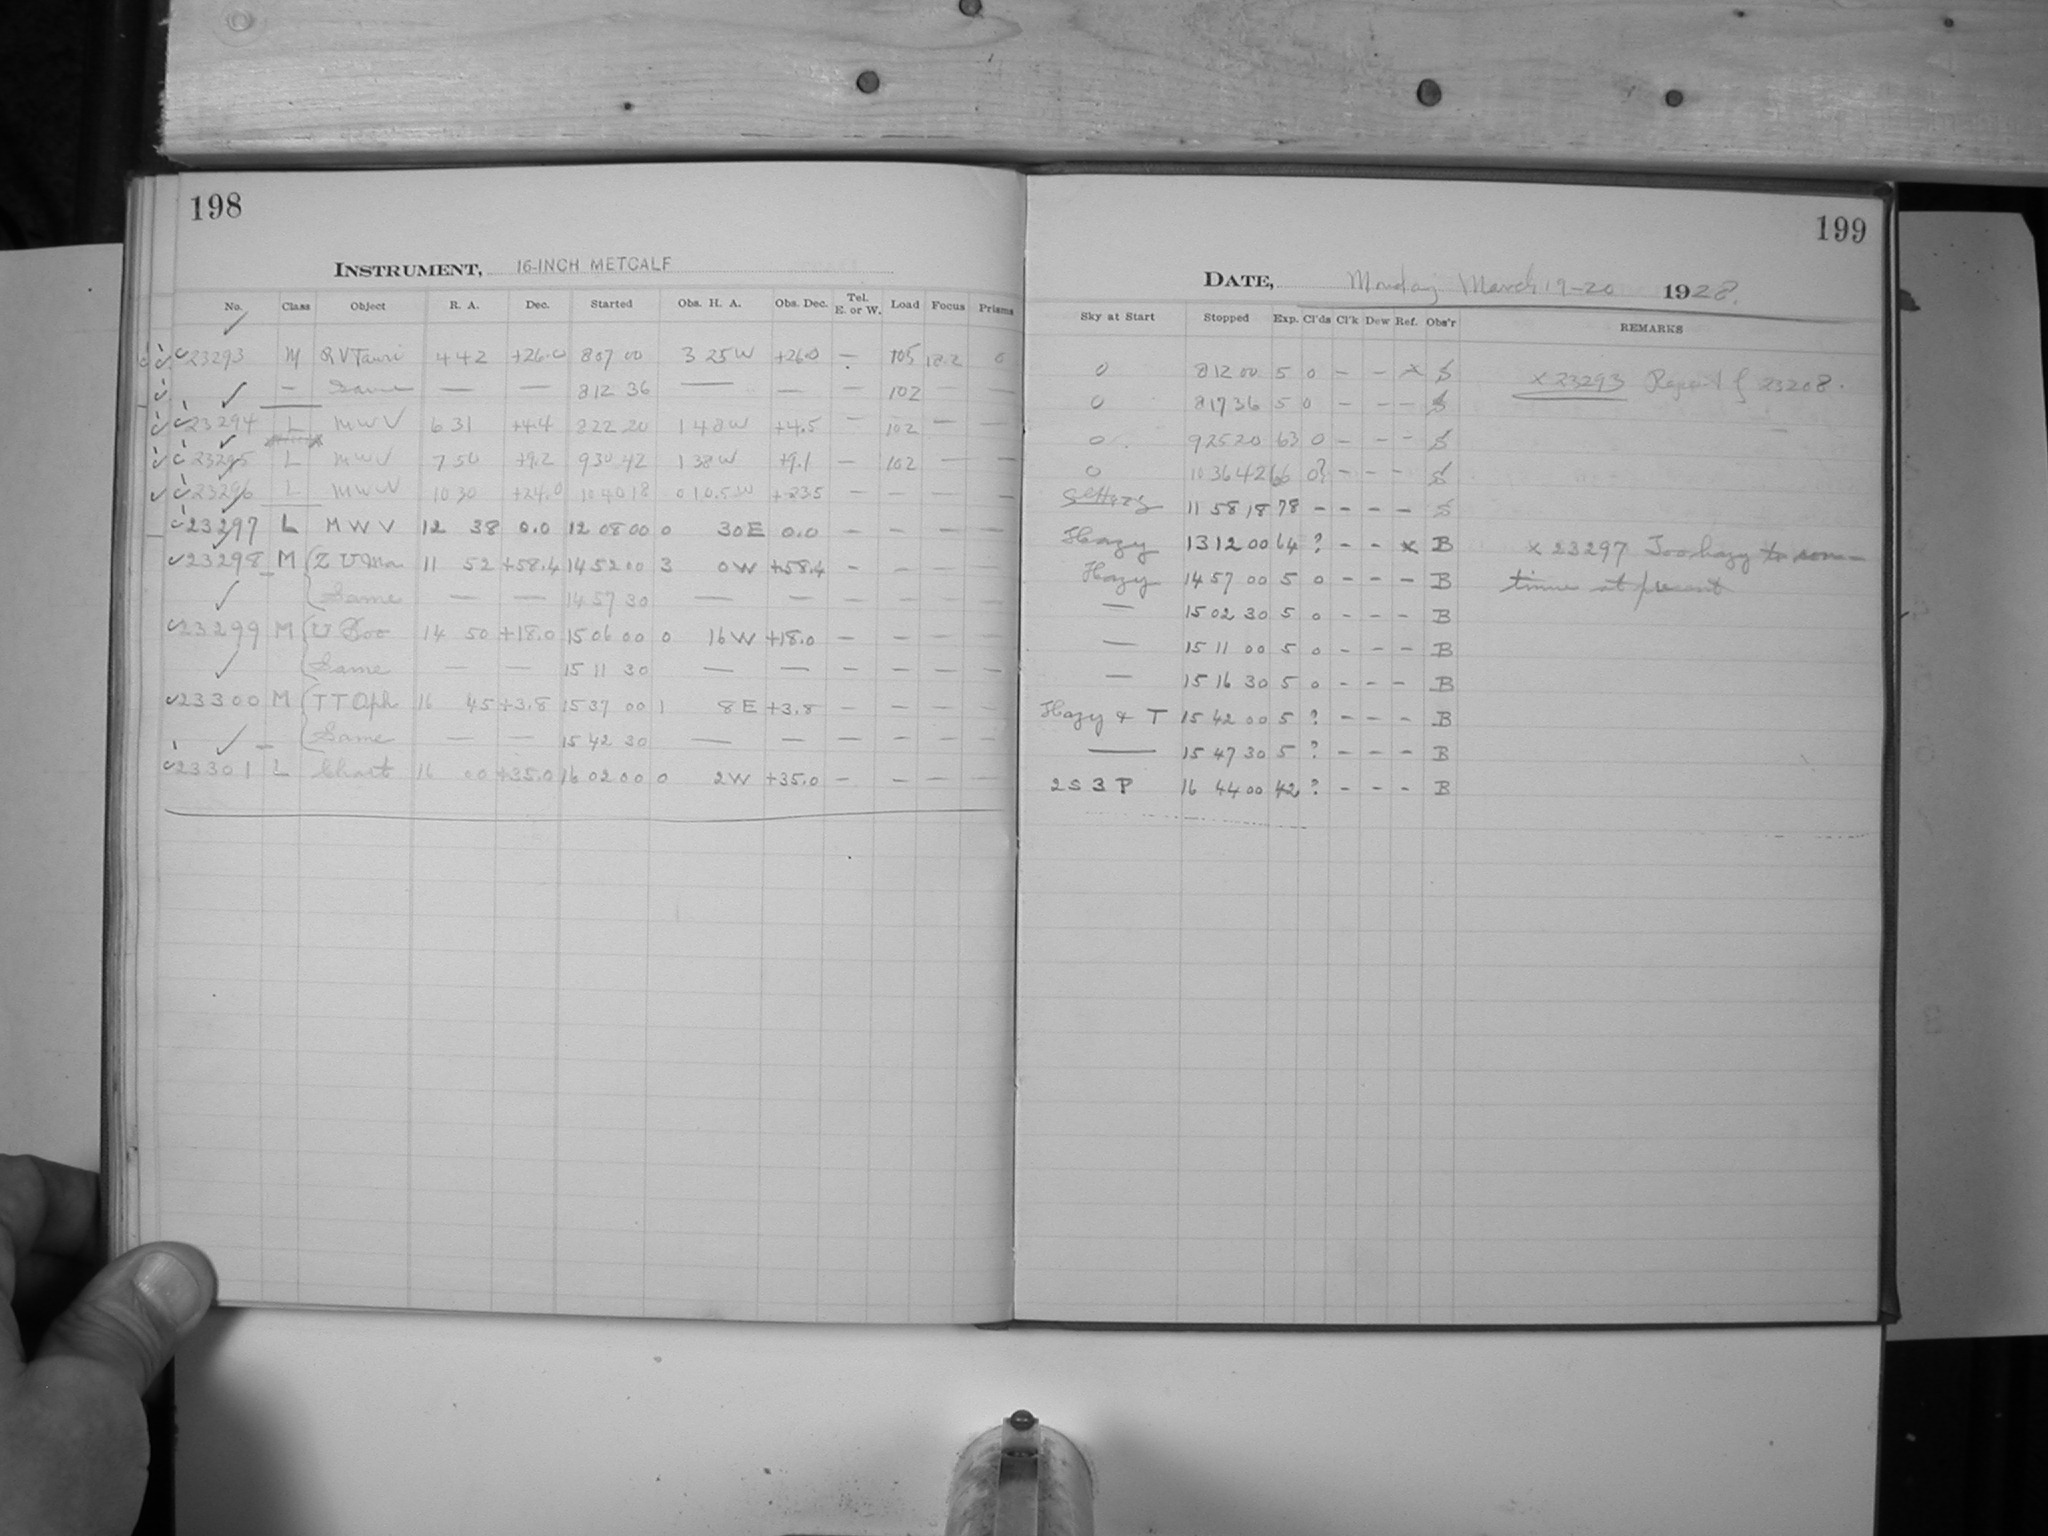 198
INSTRUMENT, 16-INCH METCALF
No. Class Object R. A. Dec. Started Obs. H. A. Obs. Dec. Tel. E. or W. Load Focus Prisms
23293 M RV Tauri 4 42 +26.0 8 07 00 3 25 W +26.0 — 105 12.2 0
— Same — — 8 12 36 — — — 102 — —
23294 L M W V 6 31 +4.4 8 22 20 1 48 W +4.5 — 102 — —
23295 L M W V 7 50 +9.2 9 30 42 1 38 W +9.1 — 102 — —
23296 L M W V 10 30 +24.0 10 40 18 0 10.5 W +23.5 — — — —
23297 L M W V 12 38 0.0 12 08 00 0 30 E 0.0 — — — —
23298 M Z U Ma 11 52 +58.4 14 52 00 3 0 W +58.4 — — — —
Same — — 14 57 30 — — — — — —
23299 M U Boo 14 50 +18.0 15 06 00 0 16 W +18.0 — — — —
Same — — 15 11 30 — — — — — —
23300 M TT Oph 16 45 +3.8 15 37 00 1 8 E +3.8 — — — —
Same — — 15 42 30 — — — — — —
23301 L Chart 16 00 +35.0 16 02 00 0 2 W +35.0 — — — —
199
DATE, Monday March 19-20 1928.
Sky at Start Stopped Exp. Cl'ds Cl'k Dew Ref. Obs'r REMARKS
0 8 12 00 5 0 - - x S x 23293 Repeat of 23208.
0 8 17 36 5 0 - - - S
0 9 25 20 63 0 - - - S
0 10 36 42 66 0? - - - S
11 58 18 78 - - - - S
Hazy 13 12 00 64 ? - - x B x 23297 Too hazy to con-
Hazy 14 57 00 5 0 - - - B tinue at present
— 15 02 30 5 0 - - - B
— 15 11 00 5 0 - - - B
— 15 16 30 5 0 - - - B
Hazy & T 15 42 00 5 ? - - - B
— 15 47 30 5 ? - - - B
2 S 3 P 16 44 00 42 ? - - - B